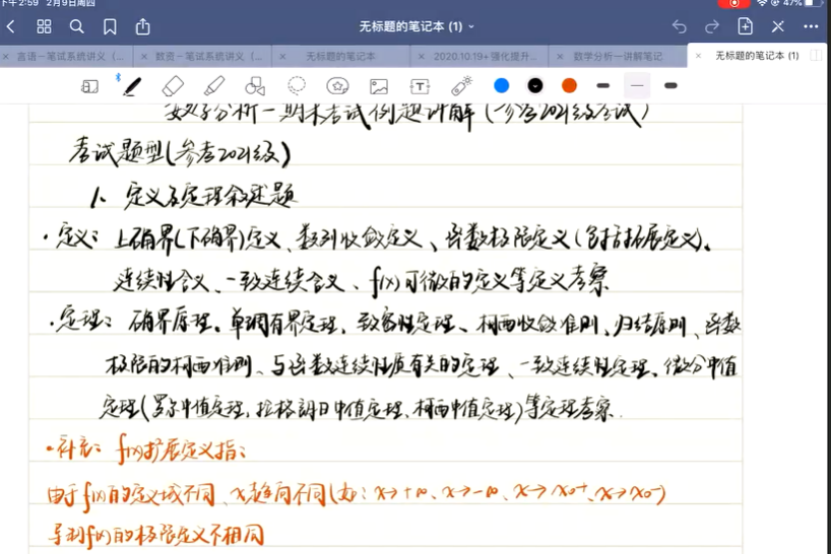 下午2:59 2月9日周四
47%
无标题的笔记本 (1)
言语－笔试系统讲义（... 数资－笔试系统讲义（... 无标题的笔记本 2020.10.19+强化提升... 数学分析一讲解笔记 无标题的笔记本 (1)
数学分析一期末考试例题讲解(参考2021级考试)
考试题型(参考2021级)
1、定义及定理叙述题
·定义：上确界(下确界)定义、数列收敛定义、函数极限定义(包括拓展定义)、
连续性含义、一致连续含义、f(x)可微的定义等定义考察
·定理：确界原理、单调有界定理、致密性定理、柯西收敛准则、归结原则、函数
极限的柯西准则、与函数连续性质有关的定理、一致连续性定理、微分中值
定理(罗尔中值定理,拉格朗日中值定理、柯西中值定理)等定理考察.
·补充：f(x)扩展定义指：
由于f(x)的定义域不同、x趋向不同(如：x→+∞、x→-∞、x→x0+、x→x0-)
导致f(x)的极限定义不相同